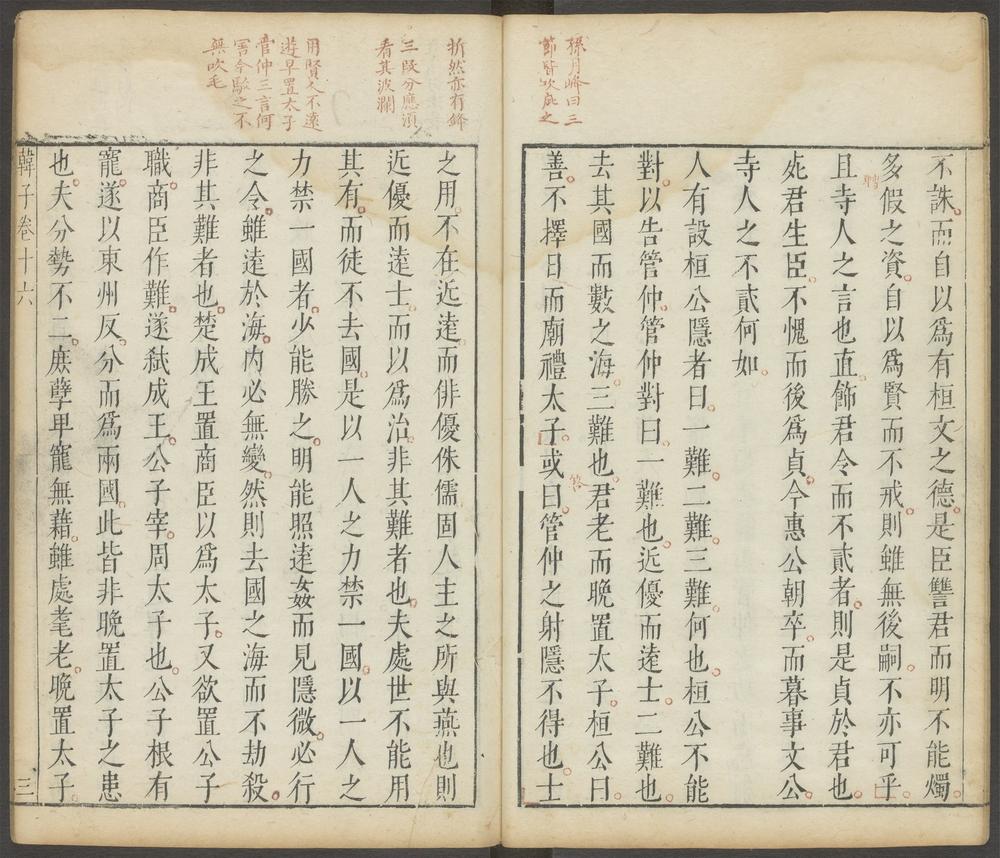 孫月峰曰三
節皆吹疵之
不誅而自以爲有桓文之德是臣讐君而明不能燭
多假之資自以爲賢而不戒則雖無後嗣不亦可乎
且寺人之言也直飾君令而不貳者則是貞於君也
死君生臣不愧而後爲貞今惠公朝卒而暮事文公
寺人之不貳何如
人有設桓公隱者曰一難二難三難何也桓公不能
對以告管仲管仲對曰一難也近優而遠士二難也
去其國而數之海三難也君老而晚置太子桓公曰
善不擇日而廟禮太子或曰管仲之射隱不得也士
析然亦有鋒
三段分應須
看其波瀾
用賢人不遠
遊早置太子
管仲三言何
害今駁之不
無吹毛
之用不在近遠而俳優侏儒固人主之所與燕也則
近優而遠士而以爲治非其難者也夫處世不能用
其有而徒不去國是以一人之力禁一國以一人之
力禁一國者少能勝之明能照遠姦而見隱微必行
之令雖遠於海內必無變然則去國之海而不劫殺
非其難者也楚成王置商臣以爲太子又欲置公子
職商臣作難遂弑成王公子宰周太子也公子根有
寵遂以東州反分而爲兩國此皆非晚置太子之患
也夫分勢不二庶孽卑寵無藉雖處耄老晚置太子
韓子卷十六
三